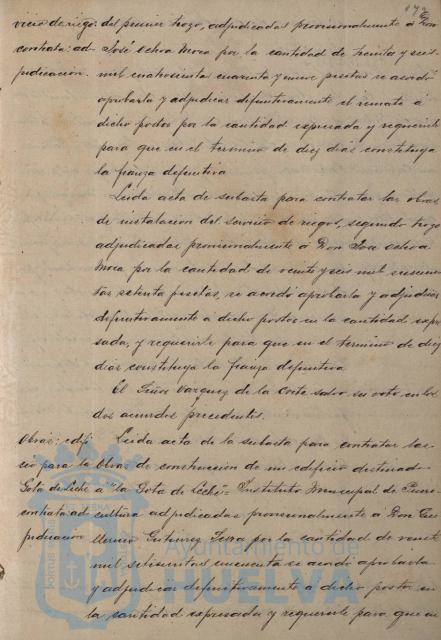 vicio de riego: del primer trozo, adjudicadas provisionalmente á Don
contrata: ad- José Ochoa Mora por la cantidad de treinta y seis
judicacion. mil cuatrocientas cuarenta y nueve pesetas se acordó
aprobarla y adjudicar definitivamente el remate á
dicho postor por la cantidad expresada y requerirle
para que en el termino de diez dias constituya
la fianza definitiva
Leida acta de subasta para contratar las obras
de instalacion del servicio de riegos, segundo trozo
adjudicadas provisionalmente á Don José Ochoa
Mora por la cantidad de veinte y seis mil
setenta pesetas, se acordó aprobarla y adjudicar
definitivamente a dicho postor en la cantidad expre-
sada, y requerirle para que en el termino de diez
dias constituya la fianza definitiva
El Señor Vazquez de la Corte salvo su voto en los
dos acuerdos precedentes.
Obras: edifi- Leida acta de la subasta para contratar las
cio para la Obras de construccion de un edificio destinado
Gota de Leche á "la Gota de Leche" Instituto Municipal de Pueri-
contrata: ad- cultura adjudicadas provisionalmente á Don Gui-
judicacion llermo Gutierrez por la cantidad de veinte
mil setecientas cincuenta se acordó aprobarla
y adjudicar definitivamente á dicho postor en
la cantidad expresada y requerirle para que en
Ayuntamiento de
HUELVA